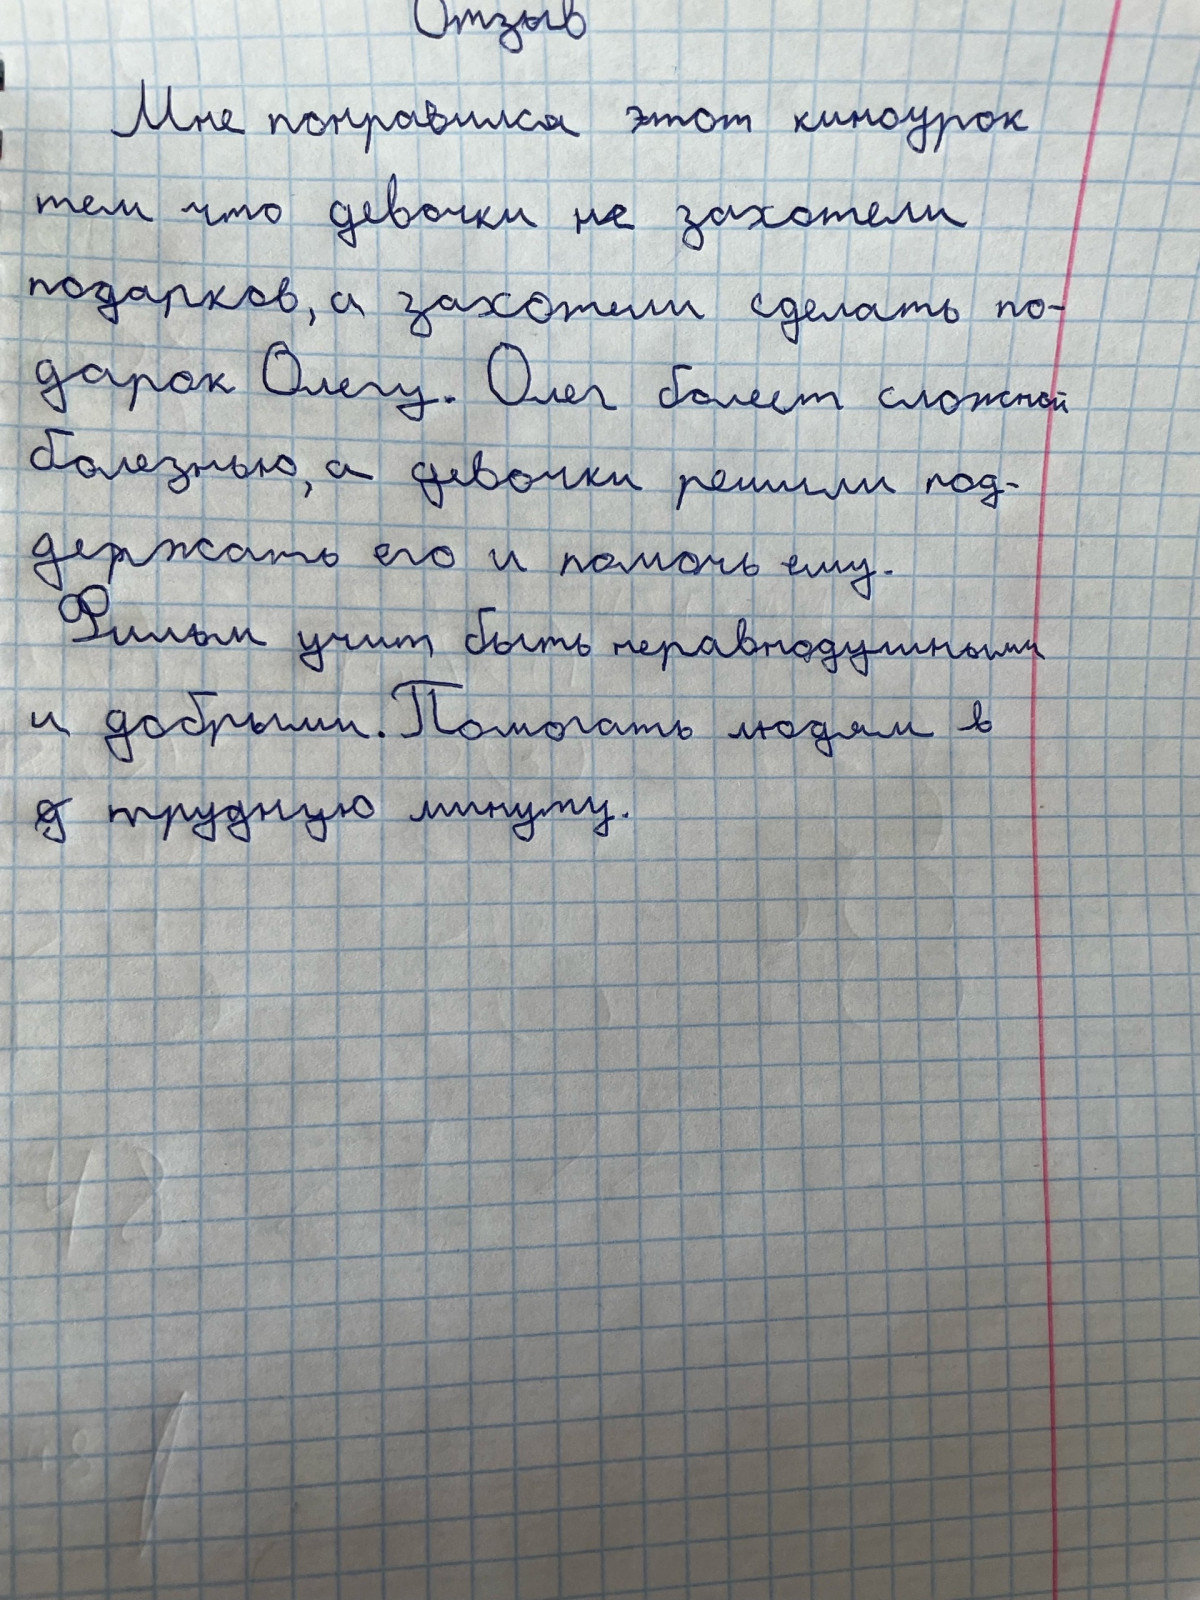 Отзыв
Мне понравился этот киноурок
тем что девочки не захотели
подарков, а захотели сделать по-
дарок Олегу. Олег болеет сложной
болезнью, а девочки решили под-
держать его и помочь ему.
Фильм учит быть неравнодушными
и добрыми. Помогать людям в
трудную минуту.